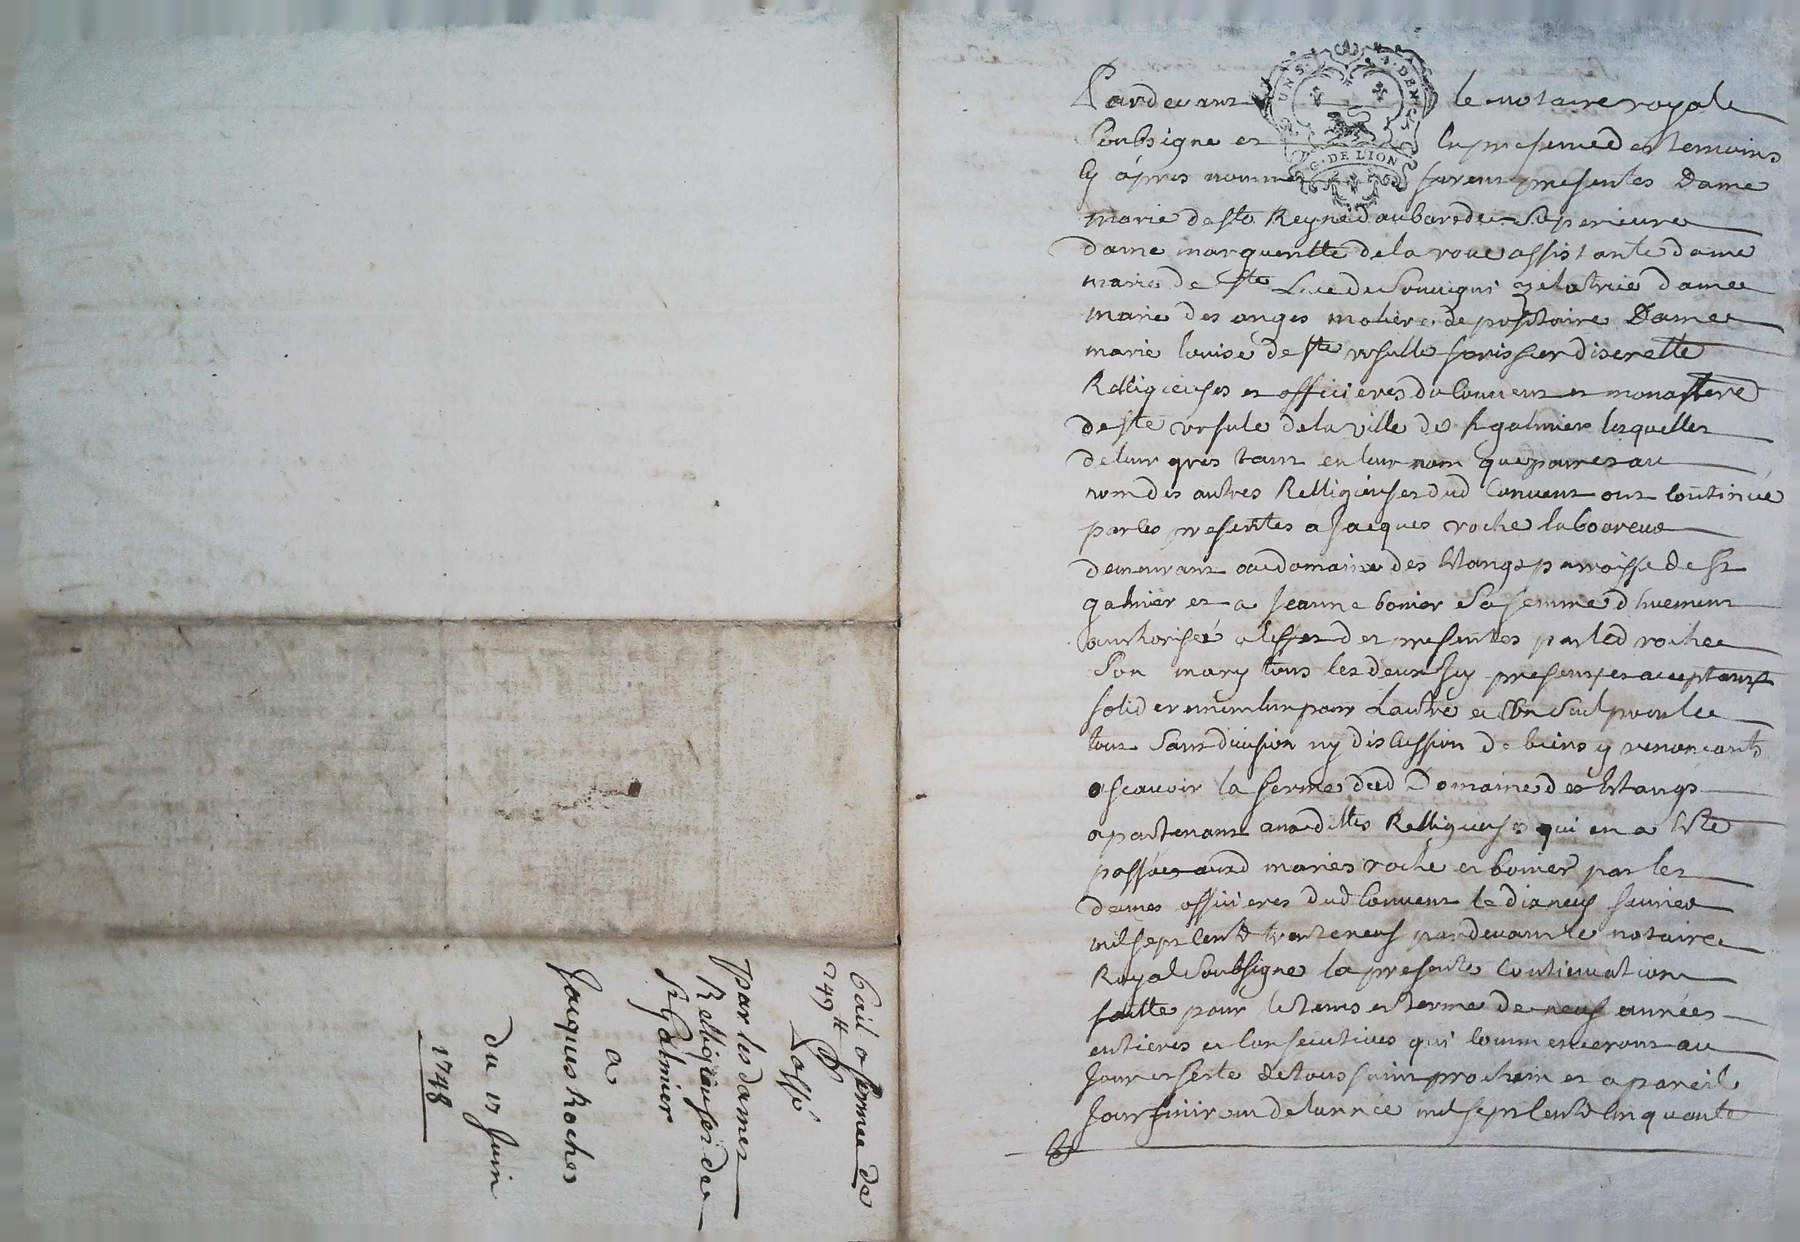 Bail a fermee de
249 ₶ passé
par les dames
Relligieuses de
St Galmier
a
Jacques Roches
du 17 Juin
1748
G. DE LION
Pardevant le notaire royal
soubsigne et en presence des temoins
cy apres nommes furent presentes Dame
marie de ste Reyne daubarede superieure
dame margueritte de la roue assistante dame
marie de ste Luce de Souvigni zelatrice dame
marie des anges moliere depositaire Dame
marie louise de ste ursulle forissier discrette
Relligieuses et officieres du Couvent et monastere
de ste ursule de la ville de st galmier lesquelles
de leur gres tant en leur nom que par et au
nom des autres Relligieuses dud Convent ont continué
par les presentes a Jacques roche laboureur
demeurant au domaine des Etangs parroisse de st
galmier et a Jeanne bonier sa femme dhuement
authorisée a leffet des presentes par led roche
son mary tous les deux icy presents et acceptants
solid erement lun pour Lautre et lun seul pour le
tout sans division ny discussion de biens y renonçants
ascavoir la ferme dud Domaine des Etangs
apartenant auxdittes Relligieuses qui en a Eté
passée auxd maries roche et bonier par les
dames officieres dud Convent le dix neuf Janvier
mil sept cent trente neuf pardevant le notaire
Royal soubsigne la presente Continuation
faitte pour le tems et terme de neuf années
entieres et consecutives qui commenceront au
Jour et feste de toussaint prochain et a pareil
Jour finiront de lannée mil sept cent cinquante